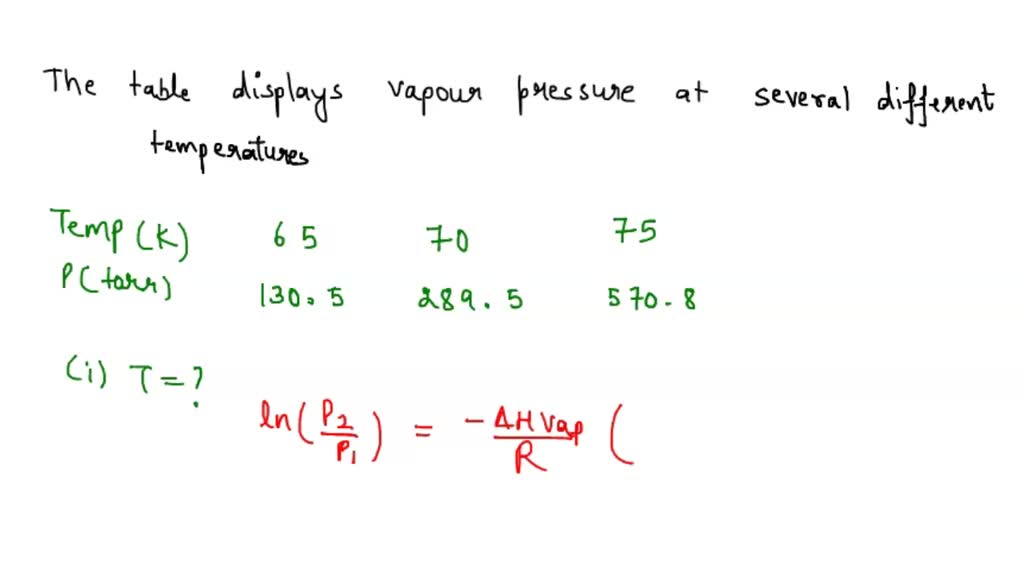 The table displays vapour pressure at several different
temperatures
Temp (K) 65 70 75
P(torr) 130.5 289.5 570.8
(i) T = ?
ln(P2/P1) = -ΔHvap/R (